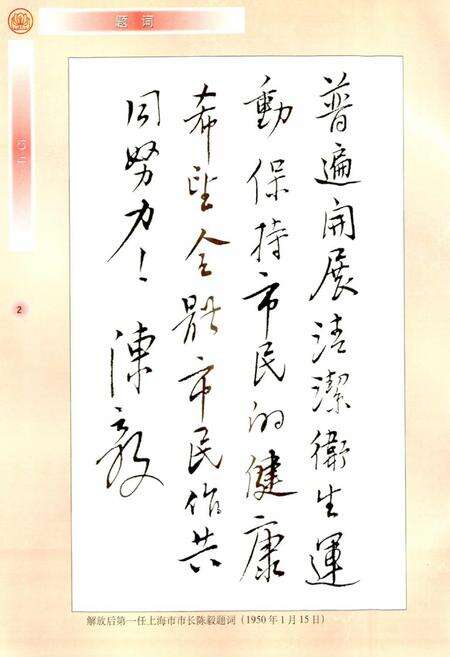 题词
普遍開展清潔衛生運
動保持市民的健康
希望全體市民作共
同努力！
陳毅
2
解放后第一任上海市市长陈毅题词（1950年1月15日）